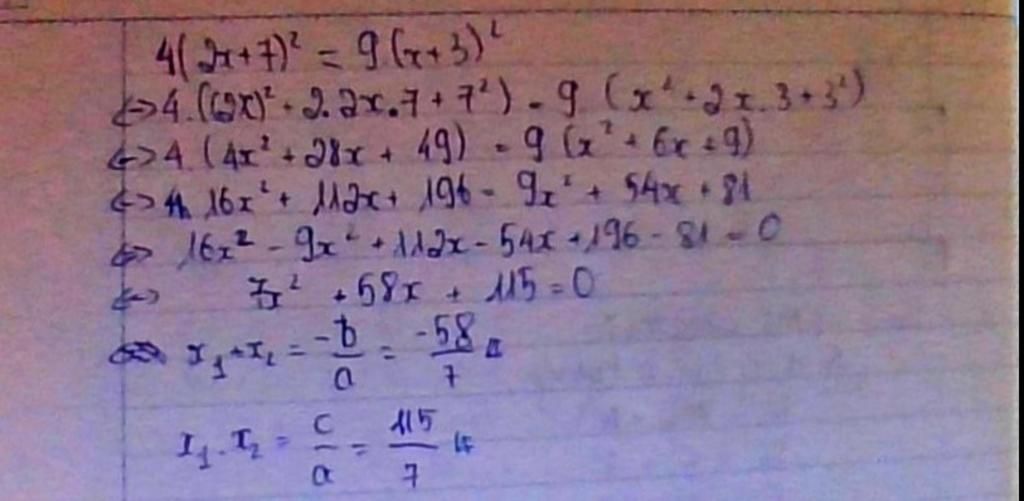 4(2x+7)² = 9(x+3)²
<=> 4.((2x)² + 2.2x.7 + 7²) = 9 (x² + 2x.3 + 3²)
<=> 4 (4x² + 28x + 49) = 9 (x² + 6x + 9)
<=> 16x² + 112x + 196 = 9x² + 54x + 81
<=> 16x² - 9x² + 112x - 54x + 196 - 81 = 0
<=> 7x² + 58x + 115 = 0
<=> x₁ + x₂ = -b/a = -58/7
x₁ . x₂ = c/a = 115/7